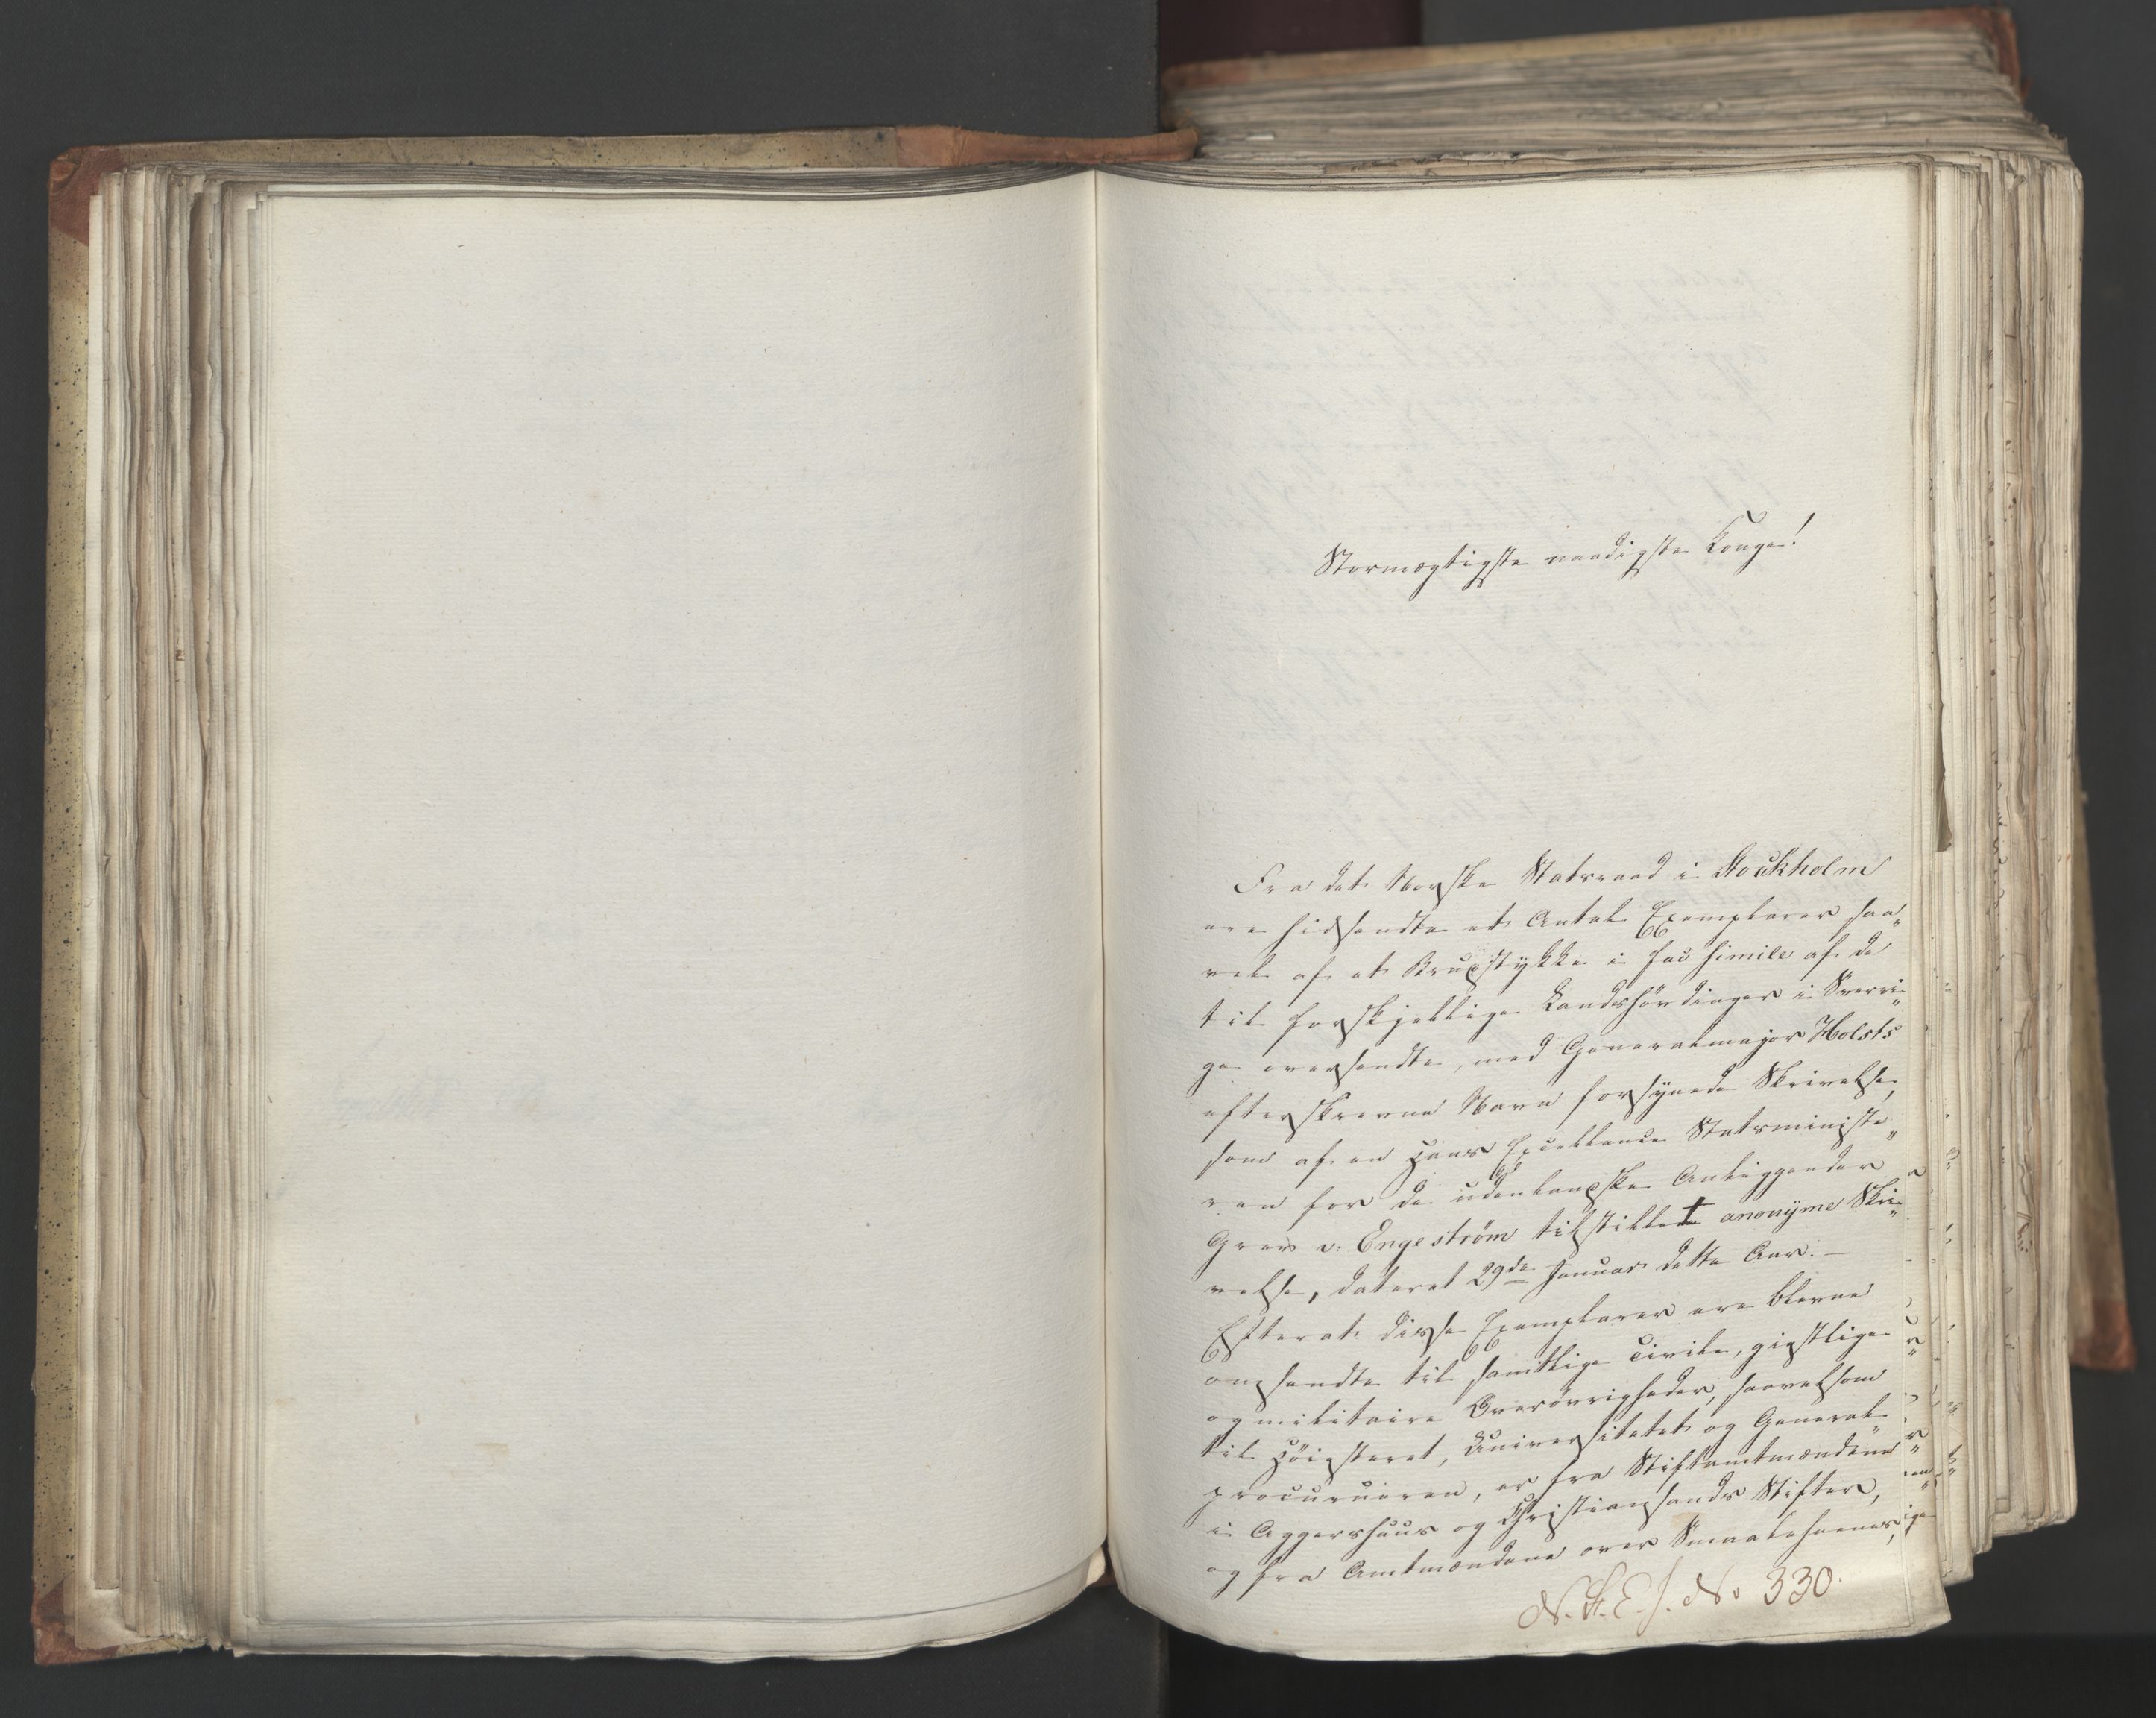 Stormægtigste naadigste Konge!
Fra det Norske Statsraad i Stockholm
ere hidsendte et Antal Exemplarer saa„
vel af et Brudstykke i fac simile af de
til forskjellige Landshövdinger i Sverri„
ge oversendte, med Generalmajor Holsts
efterskrevne Navn forsÿnede Skrivelse,
som af en Hans Excellence Statsministe„
ren for de udenlandske Anliggender
Grev v: Engeström tilstillet anonÿme Skri„
velse, dateret 29de Januar dette Aar. —
Efterat disse Exemplarer ere blevne
omsendte til samtlige civile, gejstlige
og militaire Överövrigheder, saavelsom
til Höiesteret, Universitetet og General„
procureuren, er fra Stiftamtmændene
i Aggershuus og Christiansands Stifter,
og fra Amtmændene over Smaalehnenes,
N. S. E. J. No 330.